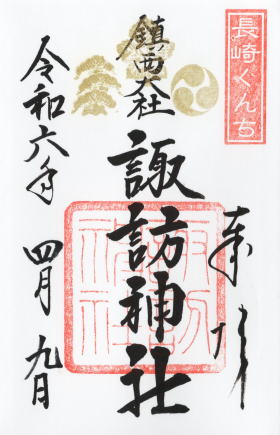 長崎くんち
奉拝
鎮西大社
諏訪神社
令和六年
四月九日
諏訪神社